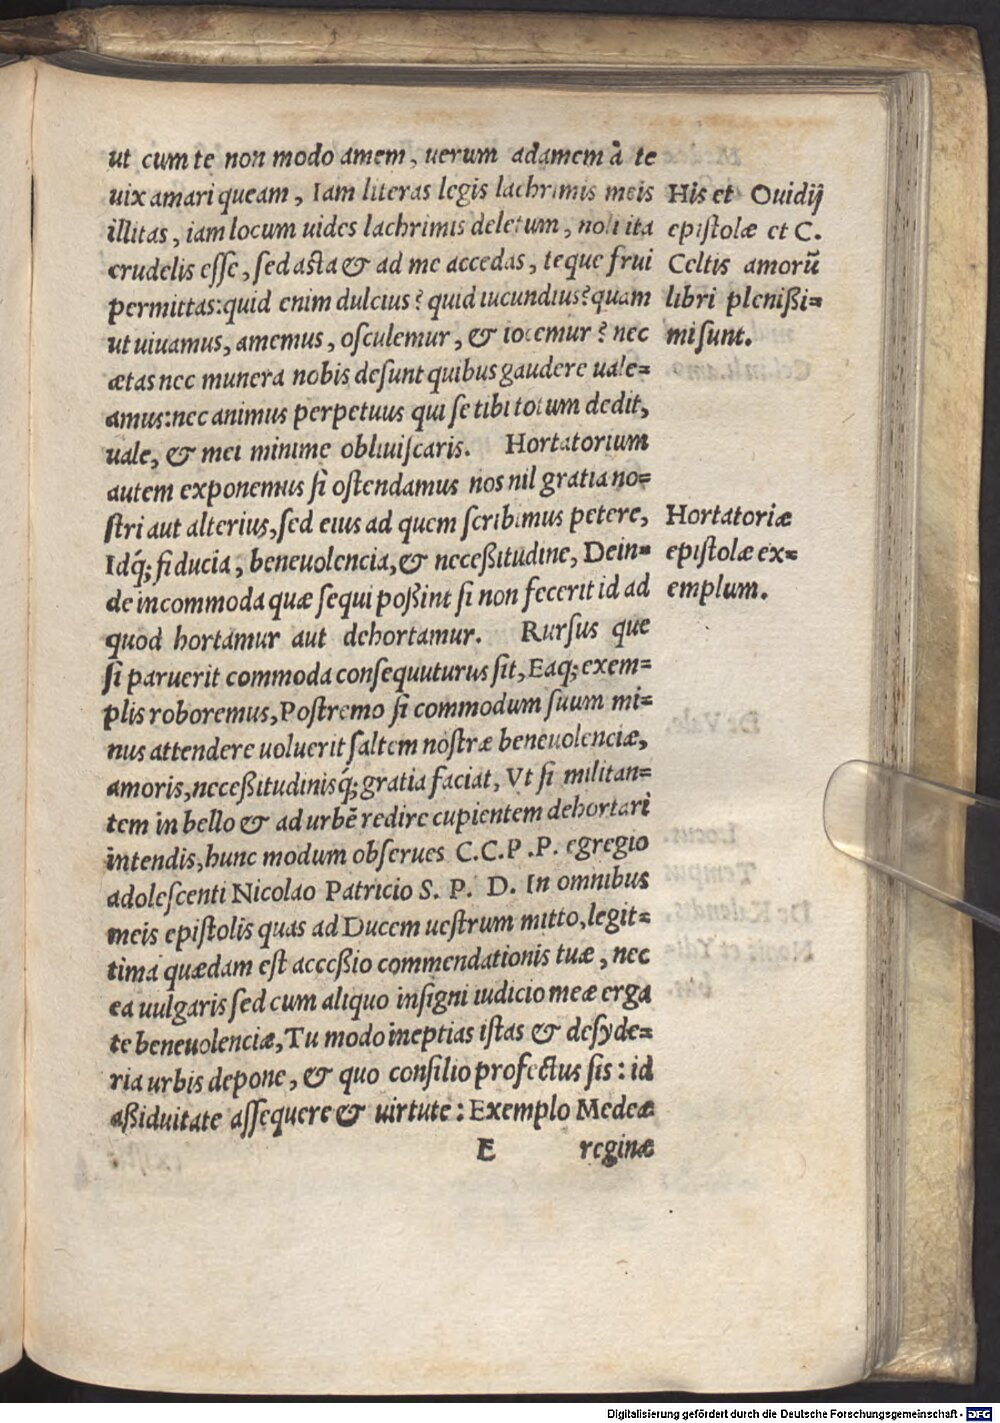 ut cum te non modo amem, uerum adamem à te
uix amari queam, Iam literas legis lachrimis meis
illitas, iam locum uides lachrimis deletum, noli ita
crudelis esse, sed asta & ad me accedas, teque frui
permittas: quid enim dulcius? quid iucundius? quam
ut uiuamus, amemus, osculemur, & iocemur? nec
ætas nec munera nobis desunt quibus gaudere uale=
amus: nec animus perpetuus qui se tibi totum dedit,
uale, & mei minime obliuiscaris. Hortatorium
autem exponemus si ostendamus nos nil gratia no=
stri aut alterius, sed eius ad quem scribimus petere,
Idq́; fiducia, beneuolencia, & neceßitudine, Dein=
de incommoda quæ sequi poßint si non fecerit id ad
quod hortamur aut dehortamur. Rursus que
si paruerit commoda consequuturus sit, Eaq; exem=
plis roboremus, Postremo si commodum suum mi=
nus attendere uoluerit saltem nostræ beneuolenciæ,
amoris, neceßitudinisq́; gratia faciat, Vt si militan=
tem in bello & ad urbē redire cupientem dehortari
intendis, hunc modum obserues C.C.P.P. egregio
adolescenti Nicolao Patricio S. P. D. In omnibus
meis epistolis quas ad Ducem uestrum mitto, legit=
tima quædam est acceßio commendationis tuæ, nec
ea uulgaris sed cum aliquo insigni iudicio meæ erga
te beneuolenciæ, Tu modo ineptias istas & desyde=
ria urbis depone, & quo consilio profectus sis: id
aßiduitate assequere & uirtute: Exemplo Medeæ
E reginæ
His et Ouidij
epistolæ et C.
Celtis amorū
libri plenißi=
mi sunt.
Hortatoriæ
epistolæ ex=
emplum.
Digitalisierung gefördert durch die Deutsche Forschungsgemeinschaft - DFG